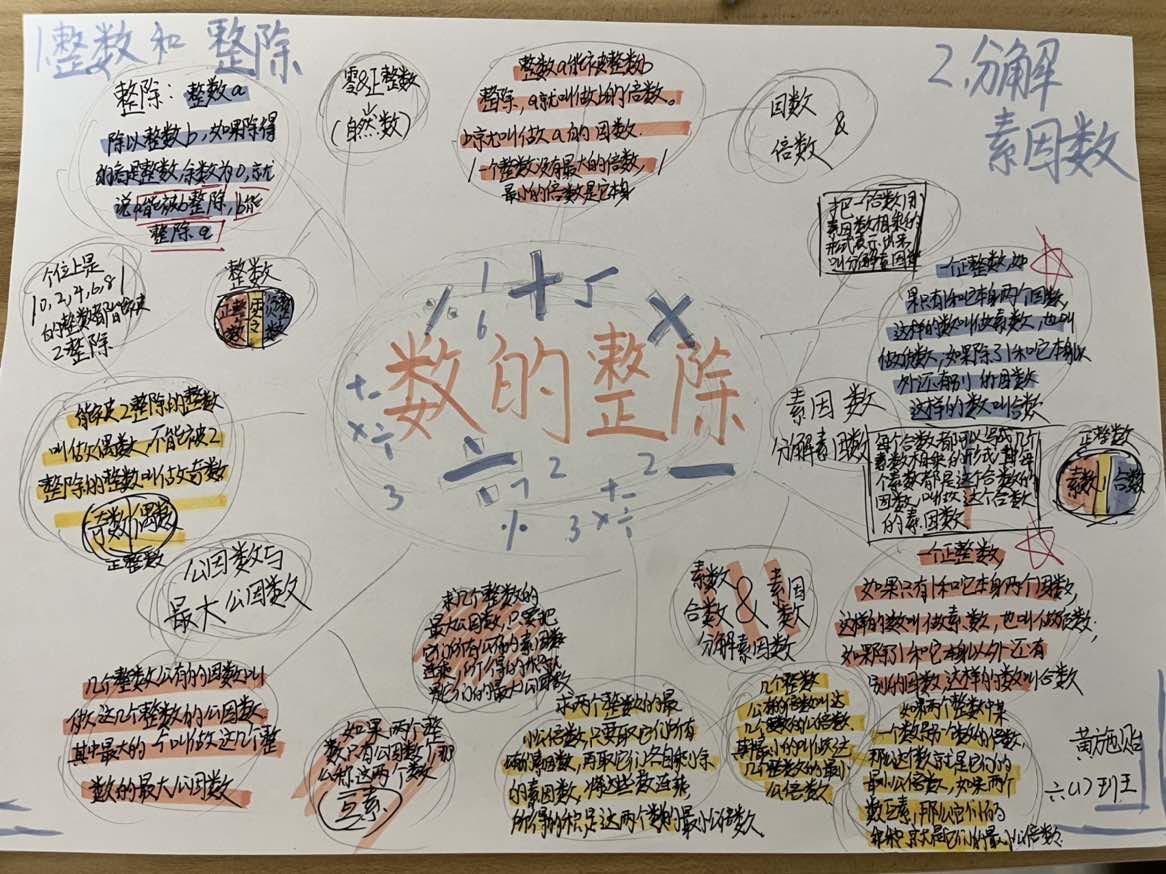 1.整数和整除
2.分解
素因数
整除：整数a
除以整数b，如果除得
的商是整数，余数为0，就
说a能被b整除，b能
整除a
零&正整数
↓
（自然数）
整数a能被整数b
整除，a就叫做b的倍数。
b就叫做a的因数.
一个整数没有最大的倍数，
最小的倍数是它本身
因数
&
倍数
把一个合数用
素因数相乘的
形式表示出来，
叫分解素因数
个位上是
0,2,4,6,8
的整数都能被
2整除
整数
正整数
零
负整数
数的整除
一个正整数，如
果只有1和它本身两个因数，
这样的数叫做素数，也叫
做质数，如果除了1和它本身以
外还有别的因数
这样的数叫合数
能被2整除的整数
叫做偶数，不能被2
整除的整数叫做奇数
奇数 偶数
正整数
素因数
分解素因数
每个合数都可以写成几个
素数相乘的形式，其中每
个素数都是这个合数的
因数，叫做这个合数
的素因数
正整数
素数 1 合数
公因数与
最大公因数
求几个整数的
最大公因数，只要把
它们所有公有的素因数
连乘，所得的积就
是它们的最大公因数
素数
合数
&
素因数
分解素因数
一个正整数，
如果只有1和它本身两个因数，
这样的数叫做素数，也叫做质数；
如果除了1和它本身以外还有
别的因数，这样的数叫合数
几个整数公有的因数叫
做这几个整数的公因数
其中最大的一个叫做这几个整
数的最大公因数
如果两个整
数只有公因数1，那
么称这两个数
互素
求两个整数的最
小公倍数，只要取它们所有
公有的素因数，再取它们各自剩余
的素因数，将这些数连乘
所得的积是这两个数的最小公倍数
几个整数
公有的倍数叫这
几个整数的公倍数
其中最小的叫做这
几个整数的最小
公倍数
如果两个整数中某
一个数是另一个数的倍数，
那么这个数就是它们的
最小公倍数，如果两个
数互素，那么它们的
乘积就是它们的最小公倍数
黄施贻
六(1)班